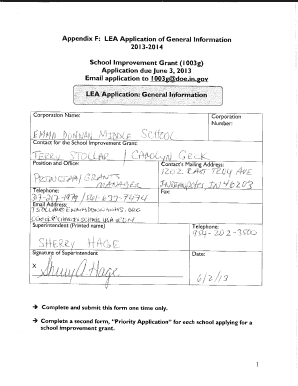 Appendix F: LEA Application of General Information
2013-2014
School Improvement Grant (1003g)
Application due June 3, 2013
Email application to 1003g@doe.in.gov
LEA Application: General Information
Corporation Name:
Corporation
Number:
EMMA DONNAN MIDDLE SCHOOL
Contact for the School Improvement Grant:
TERRY STOLLAR / CAROLYN GECK
Position and Office:
Contact's Mailing Address:
PRINCIPAL/GRANTS
MANAGER
1202 EAST TROY AVE
INDIANAPOLIS, IN 46203
Telephone:
Fax:
Email Address:
Superintendent (Printed name)
Telephone:
SHERRY HAGE
954-202-3500
Signature of Superintendent
Date:
X Sherry A. Hage
6/2/13
→ Complete and submit this form one time only.
→ Complete a second form, "Priority Application" for each school applying for a
school improvement grant.
1